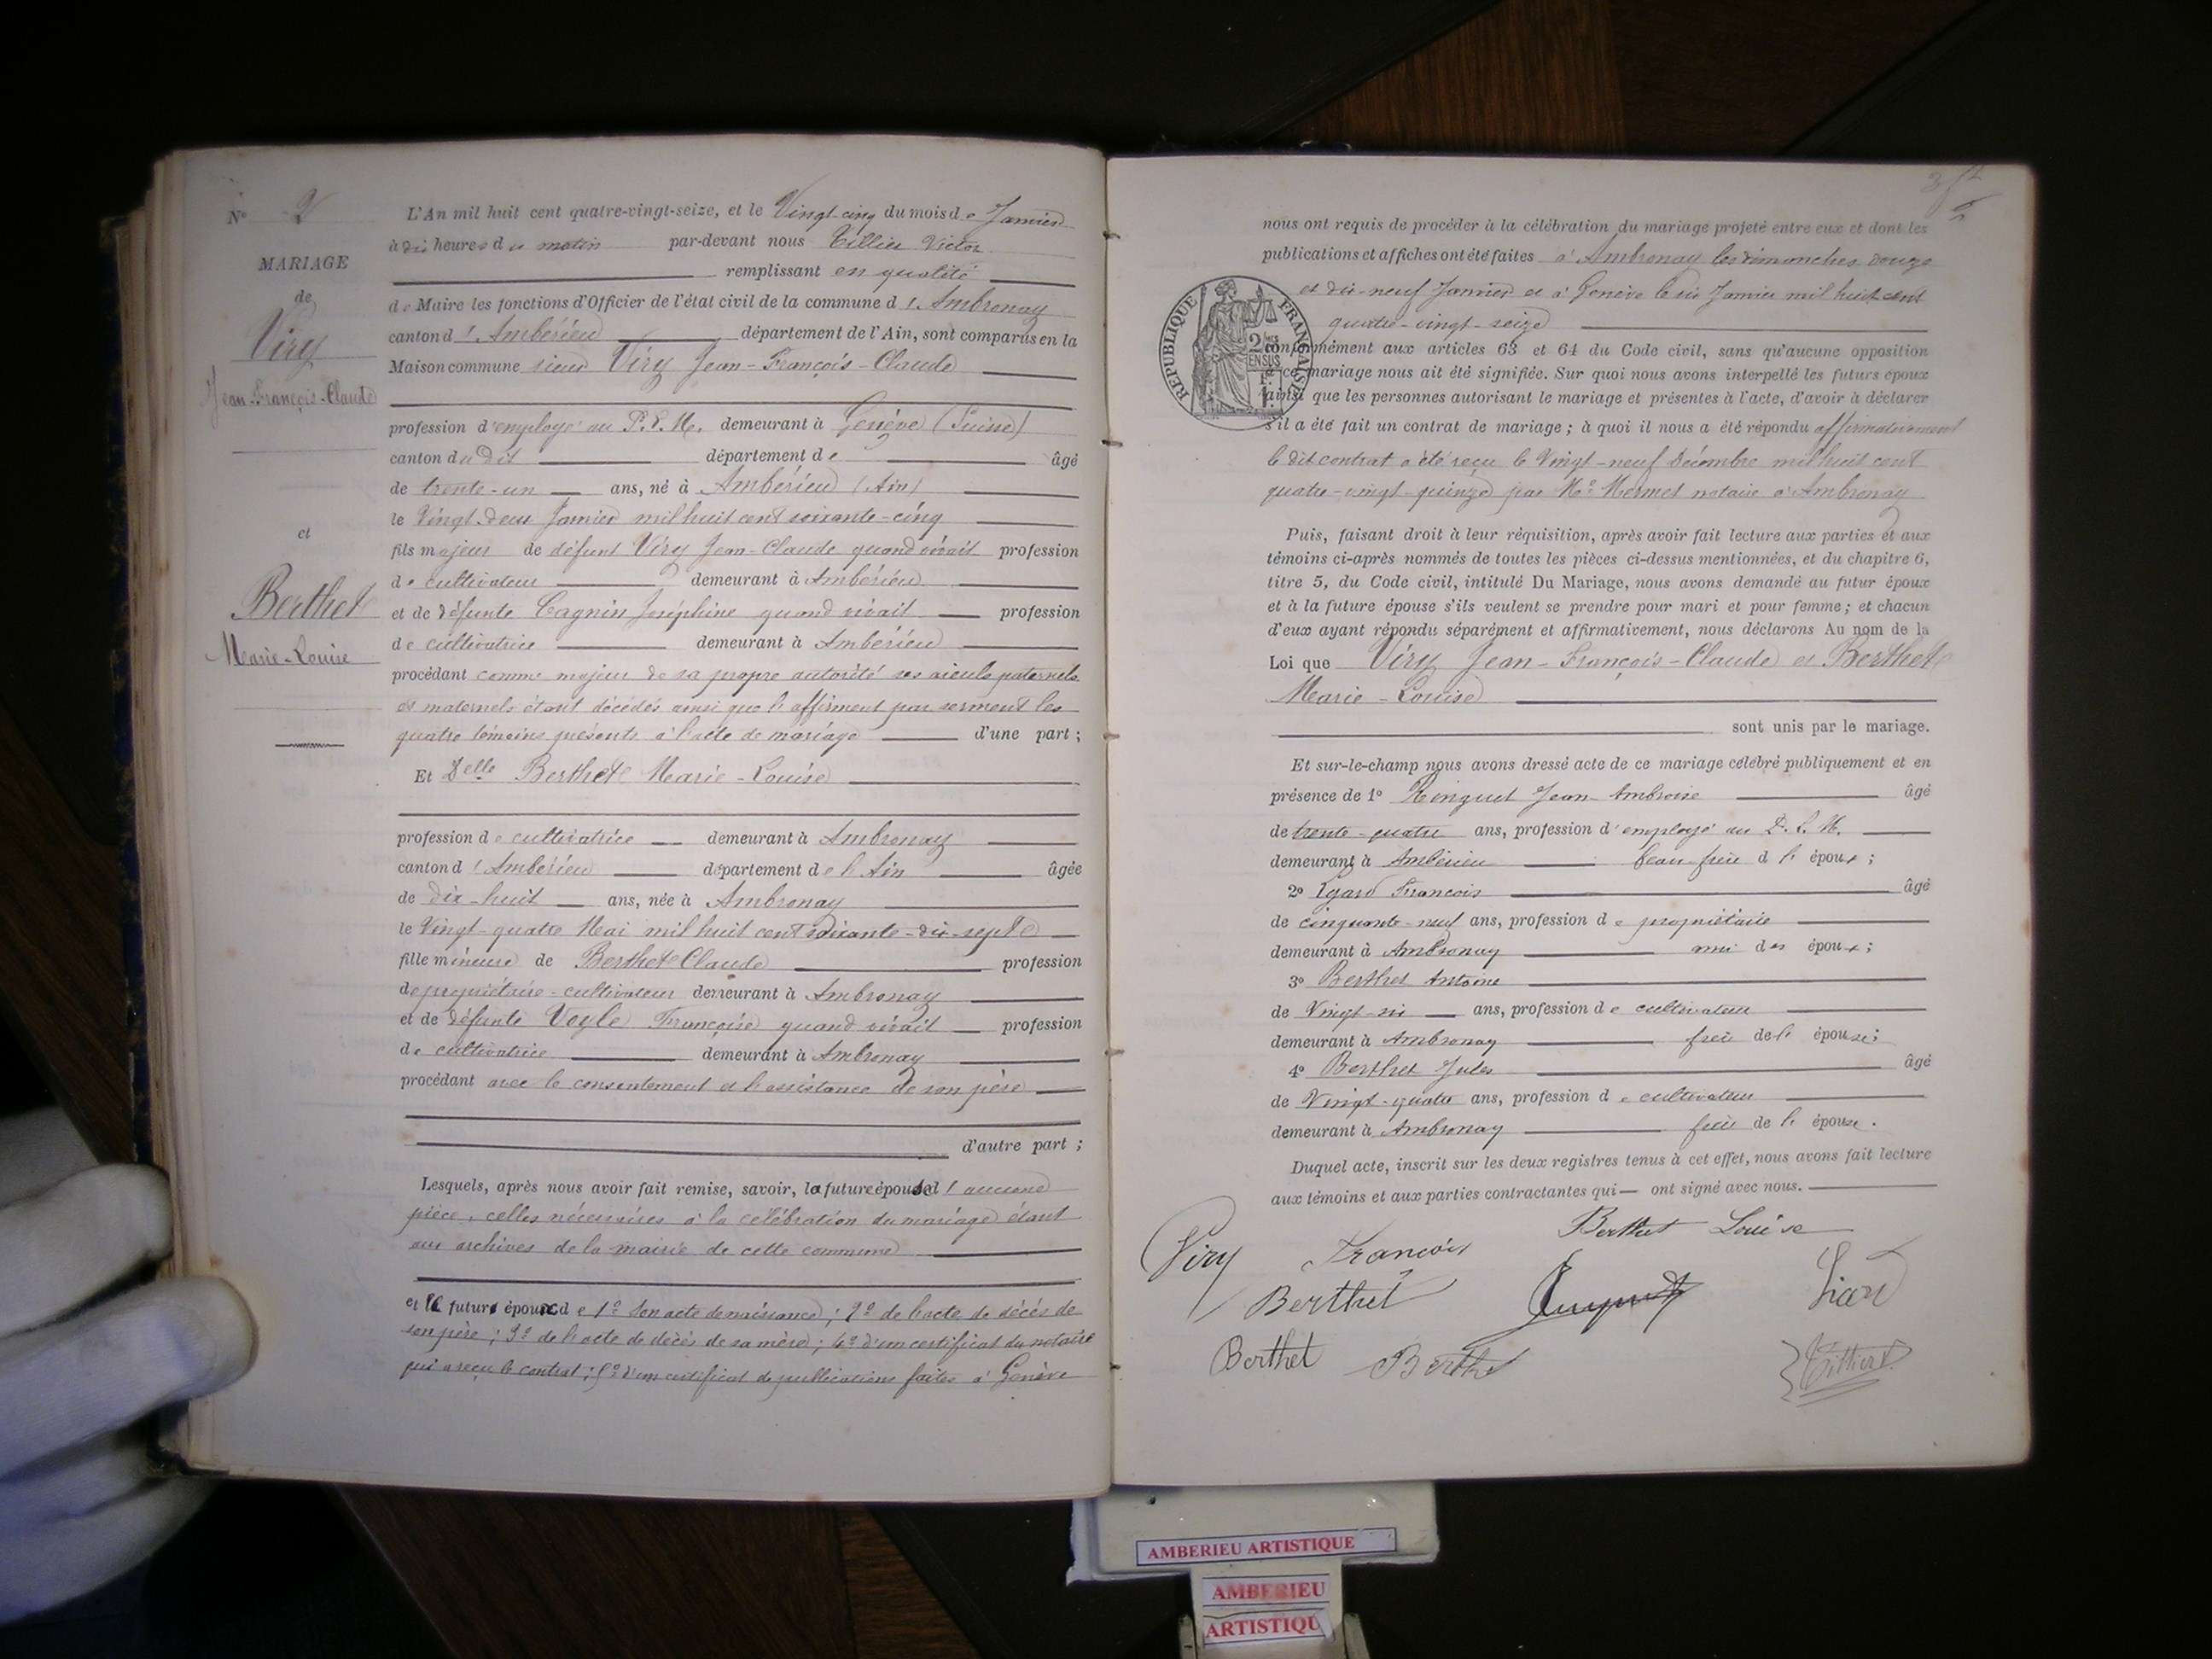 N° 2
MARIAGE
de
Viry
Jean-François-Claude
et
Berthet
Marie-Louise
L'An mil huit cent quatre-vingt-seize, et le Vingt-cinq du mois de Janvier
à dix heures du matin par-devant nous Tillier Victor
remplissant en qualité
de Maire les fonctions d'Officier de l'état civil de la commune d'Ambronay
canton d'Ambérieu département de l'Ain, sont comparus en la
Maison commune sieur Viry Jean-François-Claude
profession d'employé au P.L.M. demeurant à Genève (Suisse)
canton du dit département de âgé
de trente-un ans, né à Ambérieu (Ain)
le Vingt-deux Janvier mil huit cent soixante-cinq
fils majeur de défunt Viry Jean-Claude quand vivait profession
de cultivateur demeurant à Ambérieu
et de défunte Cagnin Joséphine quand vivait profession
de cultivatrice demeurant à Ambérieu
procédant comme majeur de sa propre autorité ses aïeuls paternels
et maternels étant décédés ainsi que l'affirment par serment les
quatre témoins présents à l'acte de mariage d'une part ;
Et Delle Berthet Marie-Louise
profession de cultivatrice demeurant à Ambronay
canton d'Ambérieu département de l'Ain âgée
de dix-huit ans, née à Ambronay
le Vingt-quatre Mai mil huit cent soixante-dix-sept
fille mineure de Berthet Claude profession
de propriétaire-cultivateur demeurant à Ambronay
et de défunte Vogle Françoise quand vivait profession
de cultivatrice demeurant à Ambronay
procédant avec le consentement et l'assistance de son père
d'autre part ;
Lesquels, après nous avoir fait remise, savoir, la future épouse d'aucune
pièce, celles nécessaires à la célébration du mariage étant
aux archives de la mairie de cette commune
et le futur époux de 1° son acte de naissance ; 2° de l'acte de décès de
son père ; 3° de l'acte de décès de sa mère ; 4° d'un certificat du notaire
qui a reçu le contrat ; 5° d'un certificat de publications faites à Genève
nous ont requis de procéder à la célébration du mariage projeté entre eux et dont les
publications et affiches ont été faites à Ambronay les dimanches douze
et dix-neuf Janvier et à Genève le six Janvier mil huit cent
quatre-vingt-seize
REPUBLIQUE FRANÇAISE
conformément aux articles 63 et 64 du Code civil, sans qu'aucune opposition
à ce mariage nous ait été signifiée. Sur quoi nous avons interpellé les futurs époux
ainsi que les personnes autorisant le mariage et présentes à l'acte, d'avoir à déclarer
s'il a été fait un contrat de mariage ; à quoi il nous a été répondu affirmativement
le dit contrat a été reçu le Vingt-neuf Décembre mil huit cent
quatre-vingt-quinze par Me Mermet notaire à Ambronay
Puis, faisant droit à leur réquisition, après avoir fait lecture aux parties et aux
témoins ci-après nommés de toutes les pièces ci-dessus mentionnées, et du chapitre 6,
titre 5, du Code civil, intitulé Du Mariage, nous avons demandé au futur époux
et à la future épouse s'ils veulent se prendre pour mari et pour femme ; et chacun
d'eux ayant répondu séparément et affirmativement, nous déclarons Au nom de la
Loi que Viry Jean-François-Claude et Berthet
Marie-Louise
sont unis par le mariage.
Et sur-le-champ nous avons dressé acte de ce mariage célébré publiquement et en
présence de 1° Jean-Ambroise âgé
de trente-quatre ans, profession d'employé au P.L.M.
demeurant à Ambérieu beau-frère de l'époux ;
2° François âgé
de cinquante-neuf ans, profession de propriétaire
demeurant à Ambronay ami des époux ;
3° Berthet Antoine
de Vingt-six ans, profession de cultivateur
demeurant à Ambronay frère de l'épouse ;
4° Berthet Jules âgé
de Vingt-quatre ans, profession de cultivateur
demeurant à Ambronay frère de l'épouse.
Duquel acte, inscrit sur les deux registres tenus à cet effet, nous avons fait lecture
aux témoins et aux parties contractantes qui ont signé avec nous.
Viry François Berthet Louise
Berthet
Berthet Berthet Tillier
AMBERIEU ARTISTIQUE
AMBERIEU
ARTISTIQU